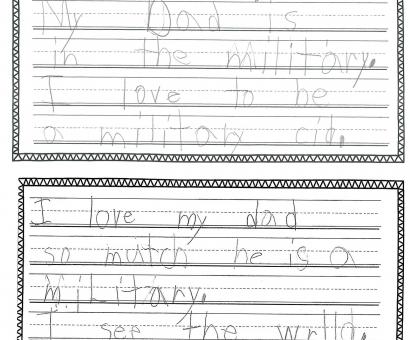 My Dad is
in the military.
I love to be
a military cid.
I love my dad
so mutch he is a
military.
I see the wrlld.